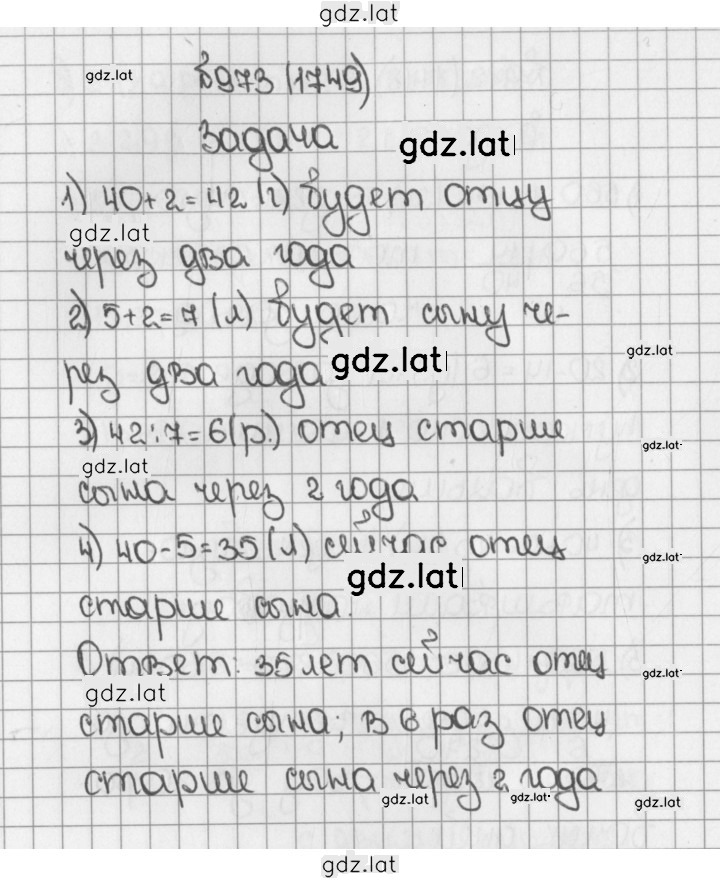 gdz.lat
№973 (1749)
gdz.lat
Задача
gdz.lat
1) 40+2=42 (г) будет отцу
gdz.lat
через два года
2) 5+2=7 (л) будет сыну че-
gdz.lat
gdz.lat
рез два года
3) 42:7=6(р.) отец старше
gdz.lat
gdz.lat
сына через 2 года
4) 40-5=35 (л) сейчас отец
gdz.lat
gdz.lat
старше сына.
Ответ: 35 лет сейчас отец
gdz.lat
gdz.lat
старше сына; в 6 раз отец
старше сына через 2 года
gdz.lat
gdz.lat
gdz.lat
gdz.lat